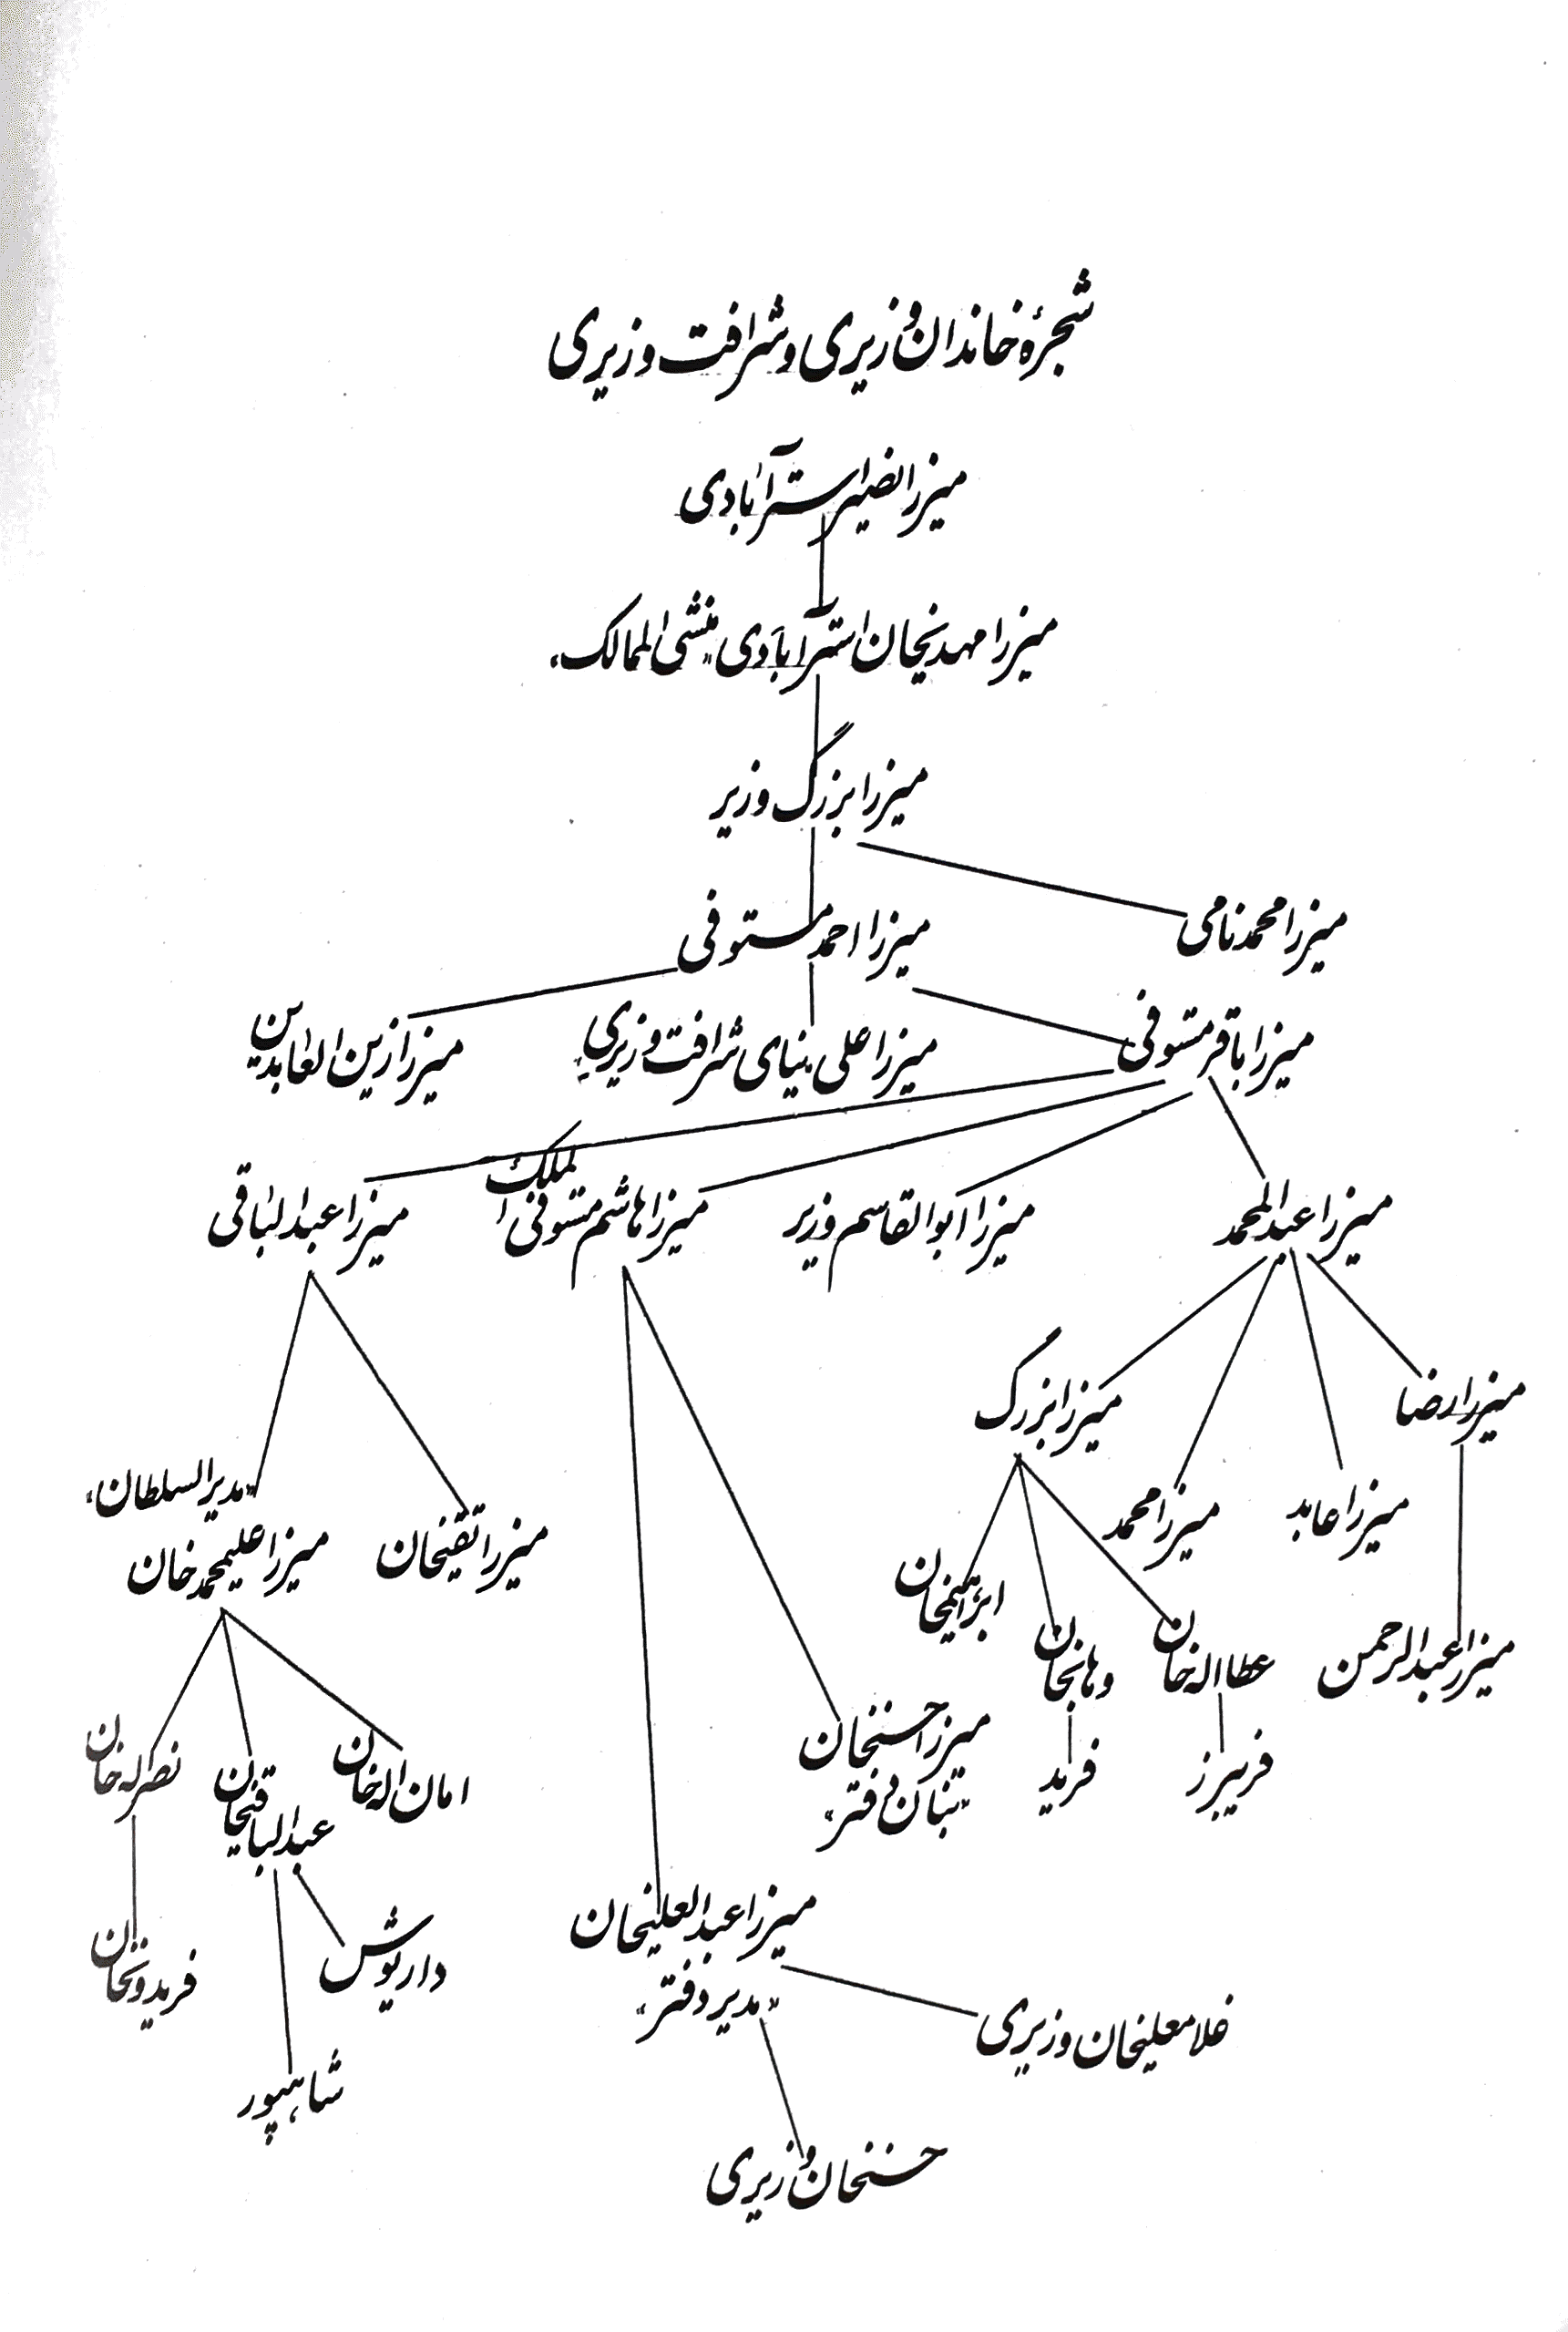 شجرهٔ خاندان وزیری و شرافت وزیری
میرزا نصیر استرآبادی
میرزا مهدیخان استرآبادی «منشی الممالک»
میرزا بزرگ وزیر
میرزا محمد نامی
میرزا احمد مستوفی
میرزا باقر مستوفی
میرزا علی نیای شرافت وزیری
میرزا زین العابدین
میرزا عبدالمحمد
میرزا ابوالقاسم وزیر
میرزا هاشم مستوفی الملک
میرزا عبدالباقی
میرزا رضا
میرزا بزرگ
میرزا عابد
میرزا محمد
«مدیرالسلطان»
میرزا تقیخان
میرزا علیمحمد خان
ابراهیمخان
میرزا عبدالرحمن
عطااله خان
وهابخان
فریبرز
فرید
میرزا حسنخان
«بنان دفتر»
امان اله خان
عبدالباقیخان
نصراله خان
میرزا عبدالعلیخان
«مدیر دفتر»
داریوش
فریدونخان
غلامعلیخان وزیری
شاهپور
حسنخان وزیری